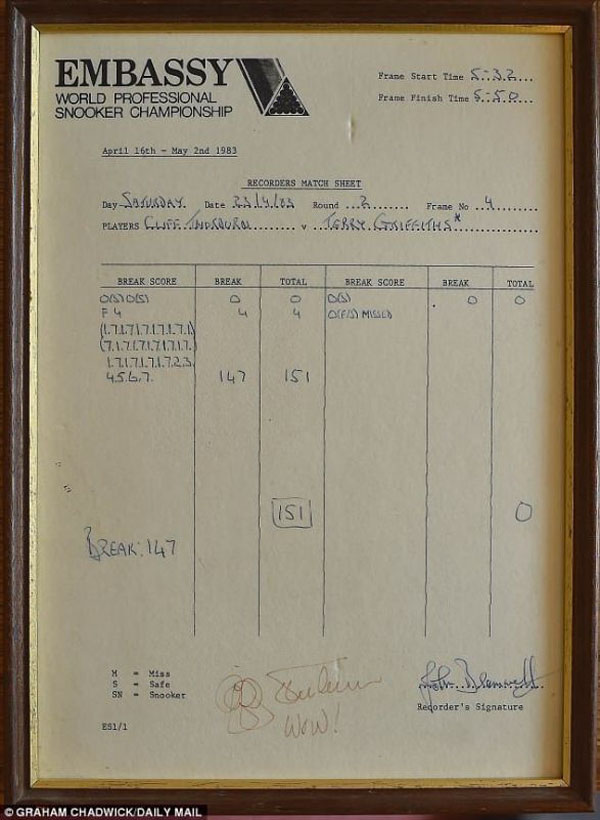 EMBASSY
WORLD PROFESSIONAL
SNOOKER CHAMPIONSHIP
Frame Start Time 5:32
Frame Finish Time 5:50
April 16th - May 2nd 1983
RECORDERS MATCH SHEET
Day SATURDAY Date 23/4/83 Round 2 Frame No 4
PLAYERS CLIFF THORBURN v TERRY GRIFFITHS*
BREAK SCORE BREAK TOTAL BREAK SCORE BREAK TOTAL
O(S) O(S) 0 0 O(S) 0 0
F 4 4 4 O(F/S) MISSED
(1.7.1.7.1.7.1.7.1.
(7.1.7.1.7.1.7.1.7.
1.7.1.7.1.7.2.3.
4.5.6.7. 147 151
151 0
BREAK: 147
M = Miss
S = Safe
SN = Snooker
WOW!
Recorder's Signature
ES1/1
© GRAHAM CHADWICK/DAILY MAIL